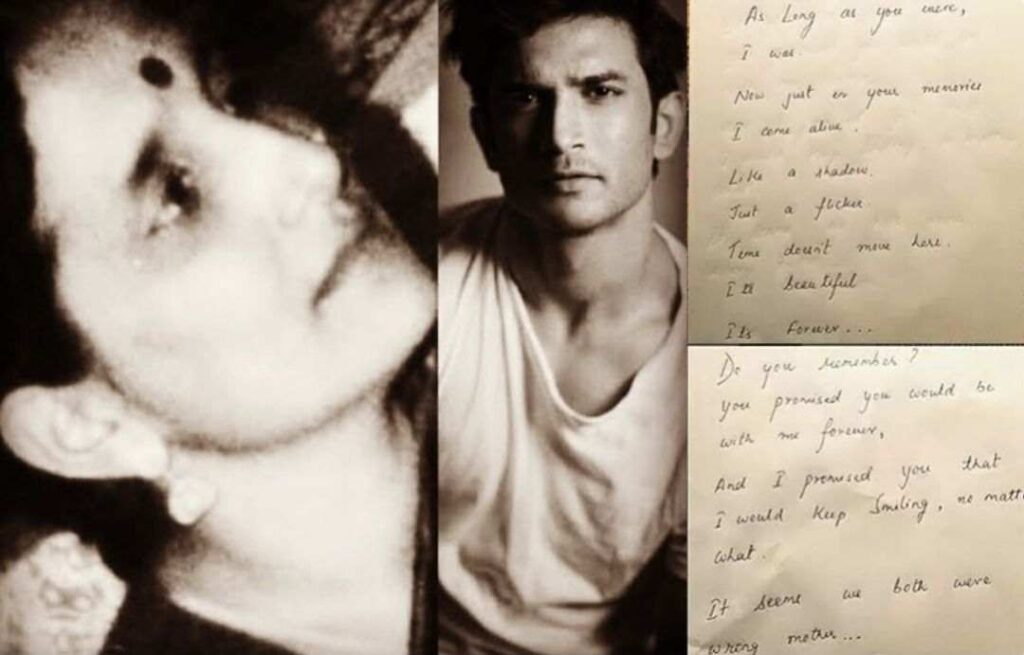 As Long as you were,
I was.
Now just in your memories
I come alive.
Like a shadow.
Just a flicker.
Time doesn't move here.
Its beautiful
Its forever...
Do you remember?
You promised you would be
with me forever,
And I promised you that
I would keep smiling, no matt
what.
It seems we both were
wrong mother...